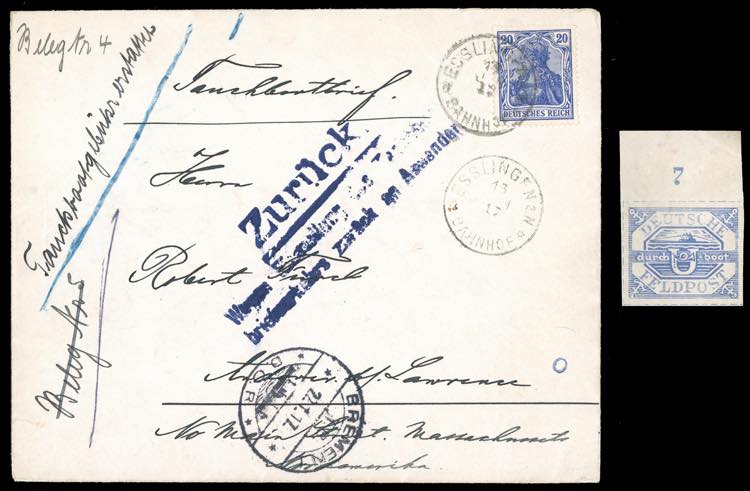 Beleg Nr 4
Tauchbootgebühr erstattet
Beleg No 5
Tauchbootbrief.
Herrn
Robert
Andover M/ Lawrence
No Main Street. Massachusetts
Nordamerika.
Zurück
Wegen
briefverkehrs zurück an Absender
20 20
DEUTSCHES REICH
ESSLINGEN
13
BAHNHOF
ESSLINGEN a N
13
17
BAHNHOF
BREMEN 1
22.1.17.
7
DEUTSCHE
durch U boot
FELDPOST